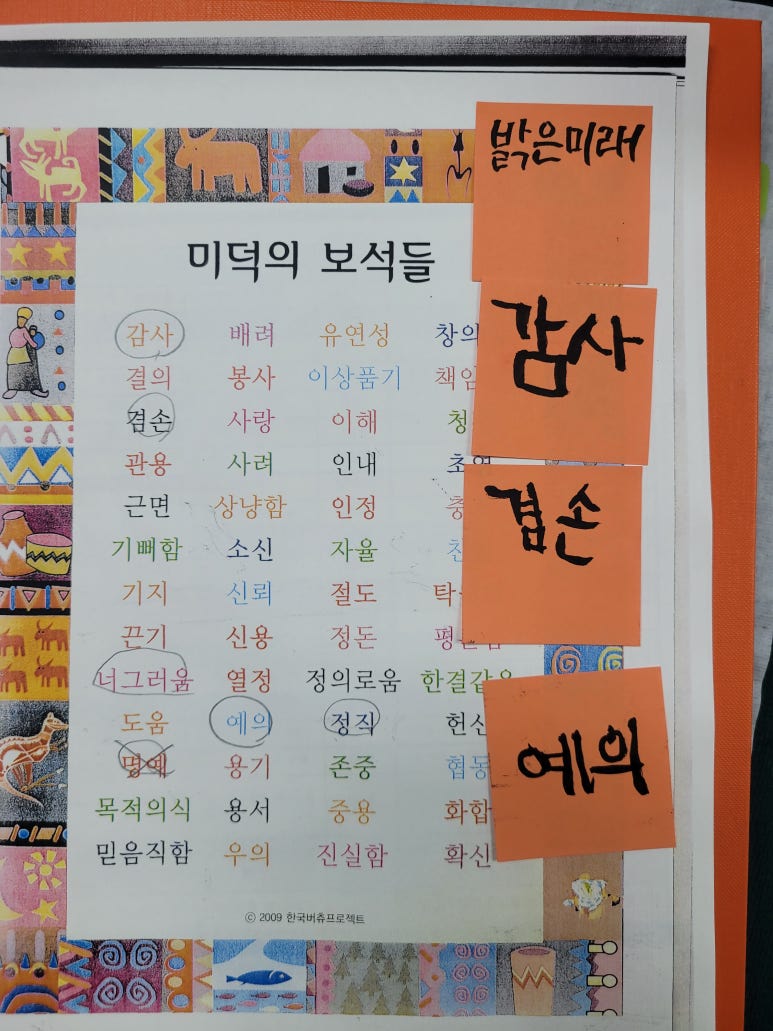 밝은미래
미덕의 보석들
감사 배려 유연성 창의
감사
결의 봉사 이상품기 책임
겸손 사랑 이해
관용 사려 인내 초연
근면 상냥함 인정
겸손
기뻐함 소신 자율
기지 신뢰 절도
끈기 신용 정돈
너그러움 열정 정의로움 한결같음
도움 예의 정직 헌신
예의
명예 용기 존중 협동
목적의식 용서 중용 화합
믿음직함 우의 진실함 확신
ⓒ 2009 한국버츄프로젝트